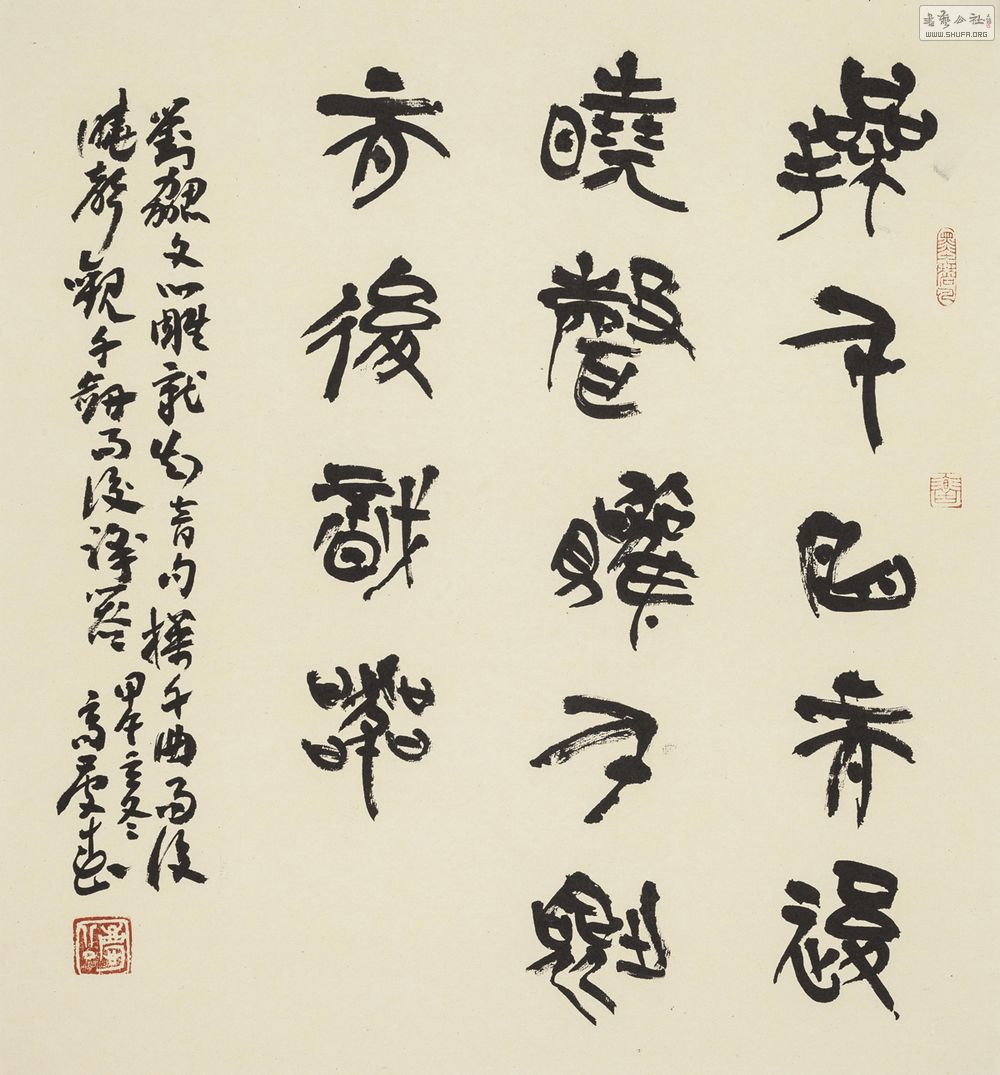 操千曲而後
曉聲觀千劍
而後識器
劉勰文心雕龍知音句操千曲而後
曉聲觀千劍而後識器
甲午立冬
高慶春
書藝公社
WWW.SHUFA.ORG